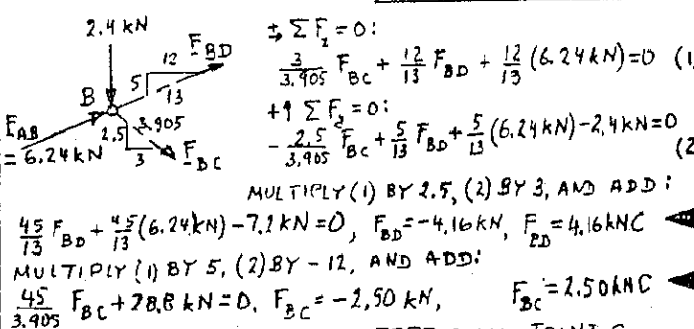 2.4 kN
12
F_BD
5
13
B
F_AB
= 6.24 kN
2.5
3.905
3
F_BC
+→ ΣF_x = 0:
3/3.905 F_BC + 12/13 F_BD + 12/13 (6.24 kN) = 0 (1)
+↑ ΣF_y = 0:
- 2.5/3.905 F_BC + 5/13 F_BD + 5/13 (6.24 kN) - 2.4 kN = 0
(2
MULTIPLY (1) BY 2.5, (2) BY 3, AND ADD:
45/13 F_BD + 45/13 (6.24 kN) - 7.2 kN = 0, F_BD = -4.16 kN, F_BD = 4.16 kN C ◄
MULTIPLY (1) BY 5, (2) BY -12, AND ADD:
45/3.905 F_BC + 28.8 kN = 0, F_BC = -2.50 kN, F_BC = 2.50 kN C ◄